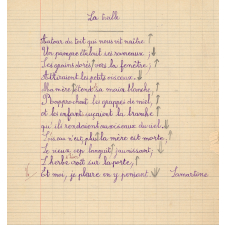 La treille
Autour du toit qui nous vit naître
Un pampre étalait ses rameaux
Ses grains dorés, vers la fenêtre,
Attiraient les petits oiseaux.
Ma mère étendait sa main blanche,
Rapprochait les grappes de miel,
et les enfants suçaient la branche
qu'ils rendaient aux oiseaux du ciel.
L'oiseau n'est plus, la mère est morte,
Le vieux cep languit jaunissant,
L'herbe croît sur la porte,
Et moi, je pleure en y pensant Lamartine